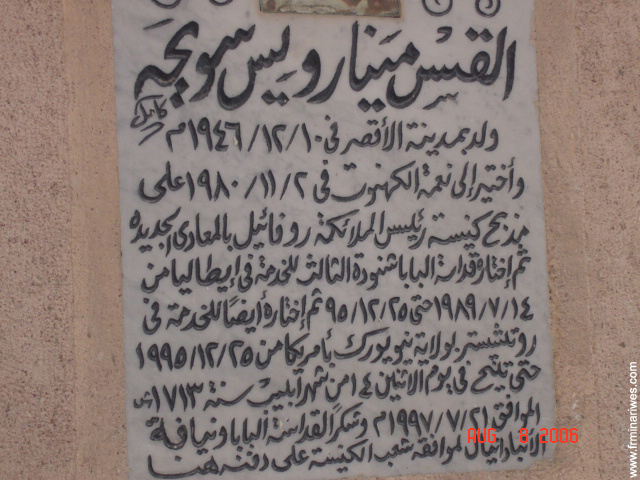 القس مينا رويس سويحه
كامل
ولد بمدينة الأقصر فى ١٩٤٦/١٢/١٠م
وأختير إلى نعمة الكهنوت فى ١٩٨٠/١١/٢ على
مذبح كنيسة رئيس الملائكة روفائيل بالمعادى الجديده
ثم إختاره قداسة البابا شنودة الثالث للخدمة فى إيطاليا من
١٩٨٩/٧/١٤ حتى ٩٥/١٢/٢٥ ثم إختاره أيضًا للخدمة فى
روتشستر بولاية نيويورك بأمريكا من ١٩٩٥/١٢/٢٥
حتى تنيح فى يوم الاثنين ١٤ من شهر أبيب سنة ١٧١٣ش
الموافق ١٩٩٧/٧/٢١م وشكرا لقداسة البابا ونيافة
الأنبا دانيال لموافقة شعب الكنيسة على دفنه هنا
AUG 8, 2006
www.frminariwes.com